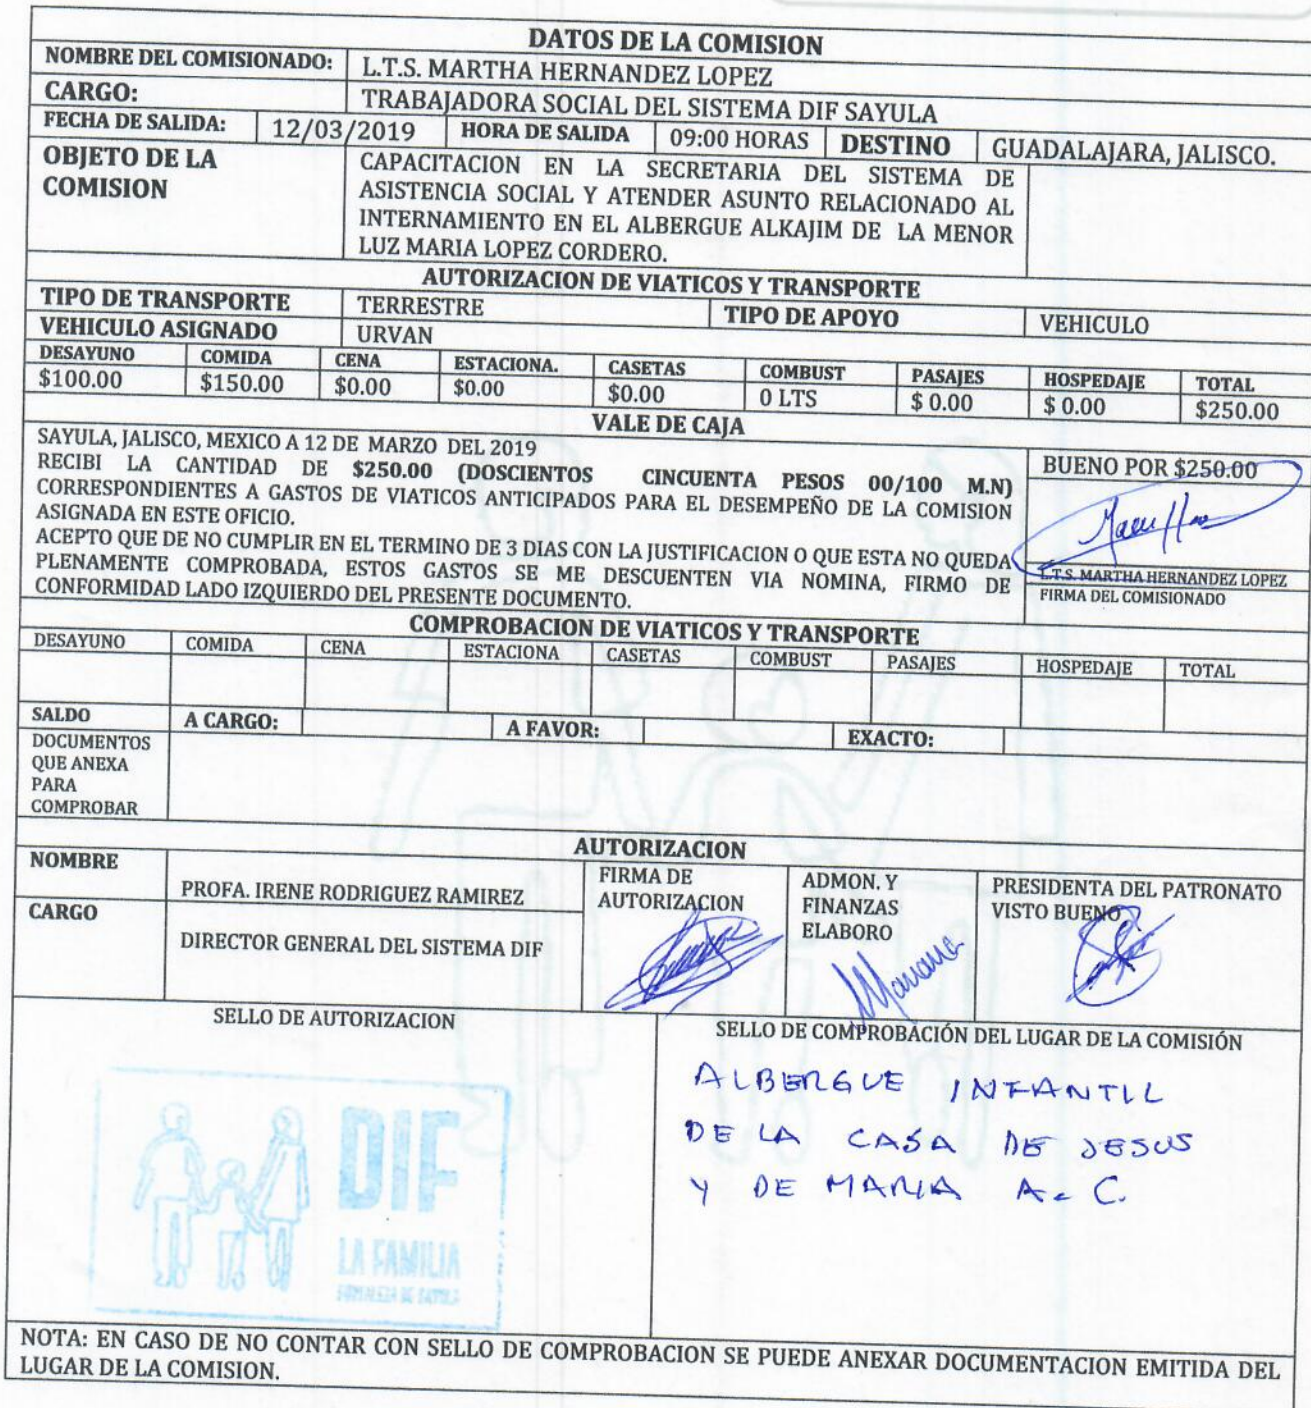 DATOS DE LA COMISION
NOMBRE DEL COMISIONADO: L.T.S. MARTHA HERNANDEZ LOPEZ
CARGO: TRABAJADORA SOCIAL DEL SISTEMA DIF SAYULA
FECHA DE SALIDA: 12/03/2019 HORA DE SALIDA 09:00 HORAS DESTINO GUADALAJARA, JALISCO.
OBJETO DE LA
COMISION
CAPACITACION EN LA SECRETARIA DEL SISTEMA DE
ASISTENCIA SOCIAL Y ATENDER ASUNTO RELACIONADO AL
INTERNAMIENTO EN EL ALBERGUE ALKAJIM DE LA MENOR
LUZ MARIA LOPEZ CORDERO.
AUTORIZACION DE VIATICOS Y TRANSPORTE
TIPO DE TRANSPORTE TERRESTRE TIPO DE APOYO VEHICULO
VEHICULO ASIGNADO URVAN
DESAYUNO COMIDA CENA ESTACIONA. CASETAS COMBUST PASAJES HOSPEDAJE TOTAL
$100.00 $150.00 $0.00 $0.00 $0.00 0 LTS $ 0.00 $ 0.00 $250.00
VALE DE CAJA
SAYULA, JALISCO, MEXICO A 12 DE MARZO DEL 2019
RECIBI LA CANTIDAD DE $250.00 (DOSCIENTOS CINCUENTA PESOS 00/100 M.N)
CORRESPONDIENTES A GASTOS DE VIATICOS ANTICIPADOS PARA EL DESEMPEÑO DE LA COMISION
ASIGNADA EN ESTE OFICIO.
ACEPTO QUE DE NO CUMPLIR EN EL TERMINO DE 3 DIAS CON LA JUSTIFICACION O QUE ESTA NO QUEDA
PLENAMENTE COMPROBADA, ESTOS GASTOS SE ME DESCUENTEN VIA NOMINA, FIRMO DE
CONFORMIDAD LADO IZQUIERDO DEL PRESENTE DOCUMENTO.
BUENO POR $250.00
L.T.S. MARTHA HERNANDEZ LOPEZ
FIRMA DEL COMISIONADO
COMPROBACION DE VIATICOS Y TRANSPORTE
DESAYUNO COMIDA CENA ESTACIONA CASETAS COMBUST PASAJES HOSPEDAJE TOTAL
SALDO A CARGO: A FAVOR: EXACTO:
DOCUMENTOS
QUE ANEXA
PARA
COMPROBAR
AUTORIZACION
NOMBRE
PROFA. IRENE RODRIGUEZ RAMIREZ
CARGO
DIRECTOR GENERAL DEL SISTEMA DIF
FIRMA DE
AUTORIZACION
ADMON. Y
FINANZAS
ELABORO
PRESIDENTA DEL PATRONATO
VISTO BUENO
SELLO DE AUTORIZACION
DIF
LA FAMILIA
SELLO DE COMPROBACIÓN DEL LUGAR DE LA COMISIÓN
ALBERGUE INFANTIL
DE LA CASA DE JESUS
Y DE MARIA A. C.
NOTA: EN CASO DE NO CONTAR CON SELLO DE COMPROBACION SE PUEDE ANEXAR DOCUMENTACION EMITIDA DEL
LUGAR DE LA COMISION.